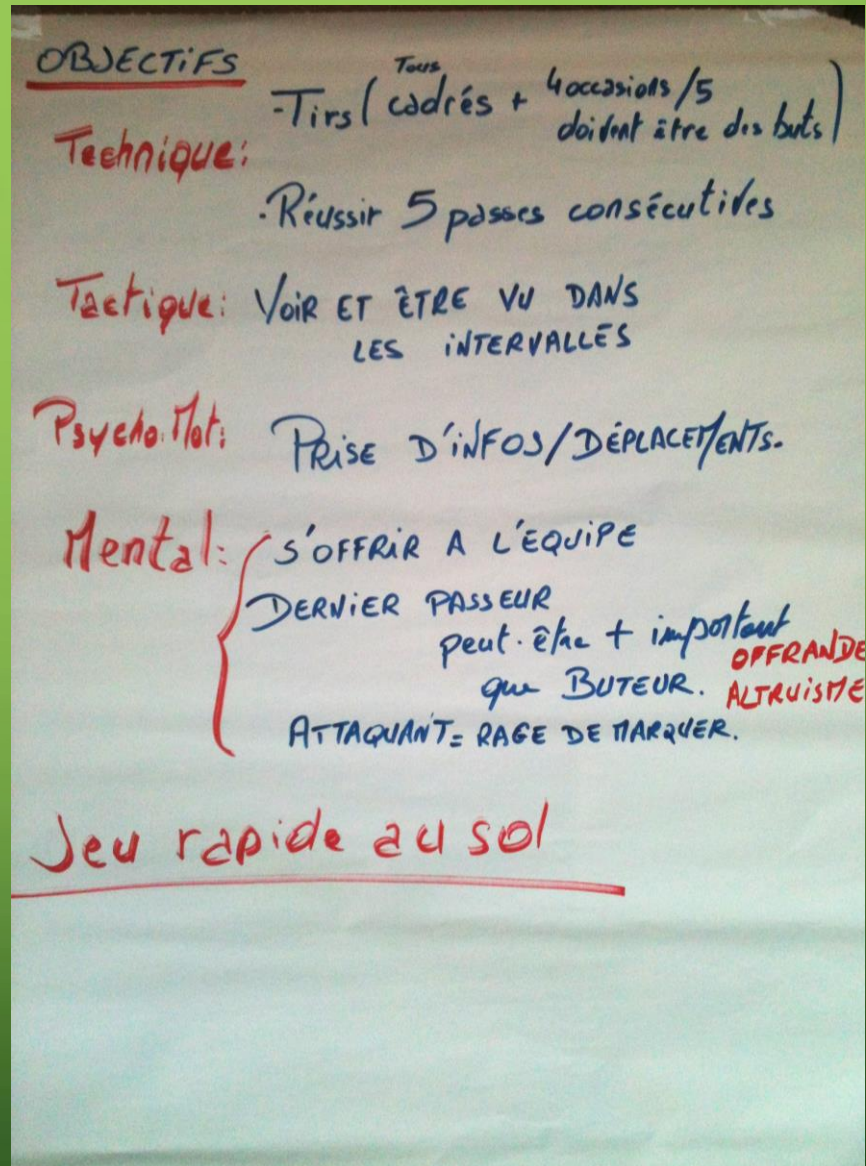 OBJECTIFS
Technique:
-Tirs ( Tous cadrés + 4 occasions / 5
doivent être des buts )
-Réussir 5 passes consécutives
Tactique: VOIR ET ÊTRE VU DANS
LES INTERVALLES
Psycho.Mot: PRISE D'INFOS/DÉPLACEMENTS.
Mental: S'OFFRIR A L'ÉQUIPE
DERNIER PASSEUR
peut-être + important
que BUTEUR.
OFFRANDE
ALTRUISME
ATTAQUANT = RAGE DE MARQUER.
Jeu rapide au sol